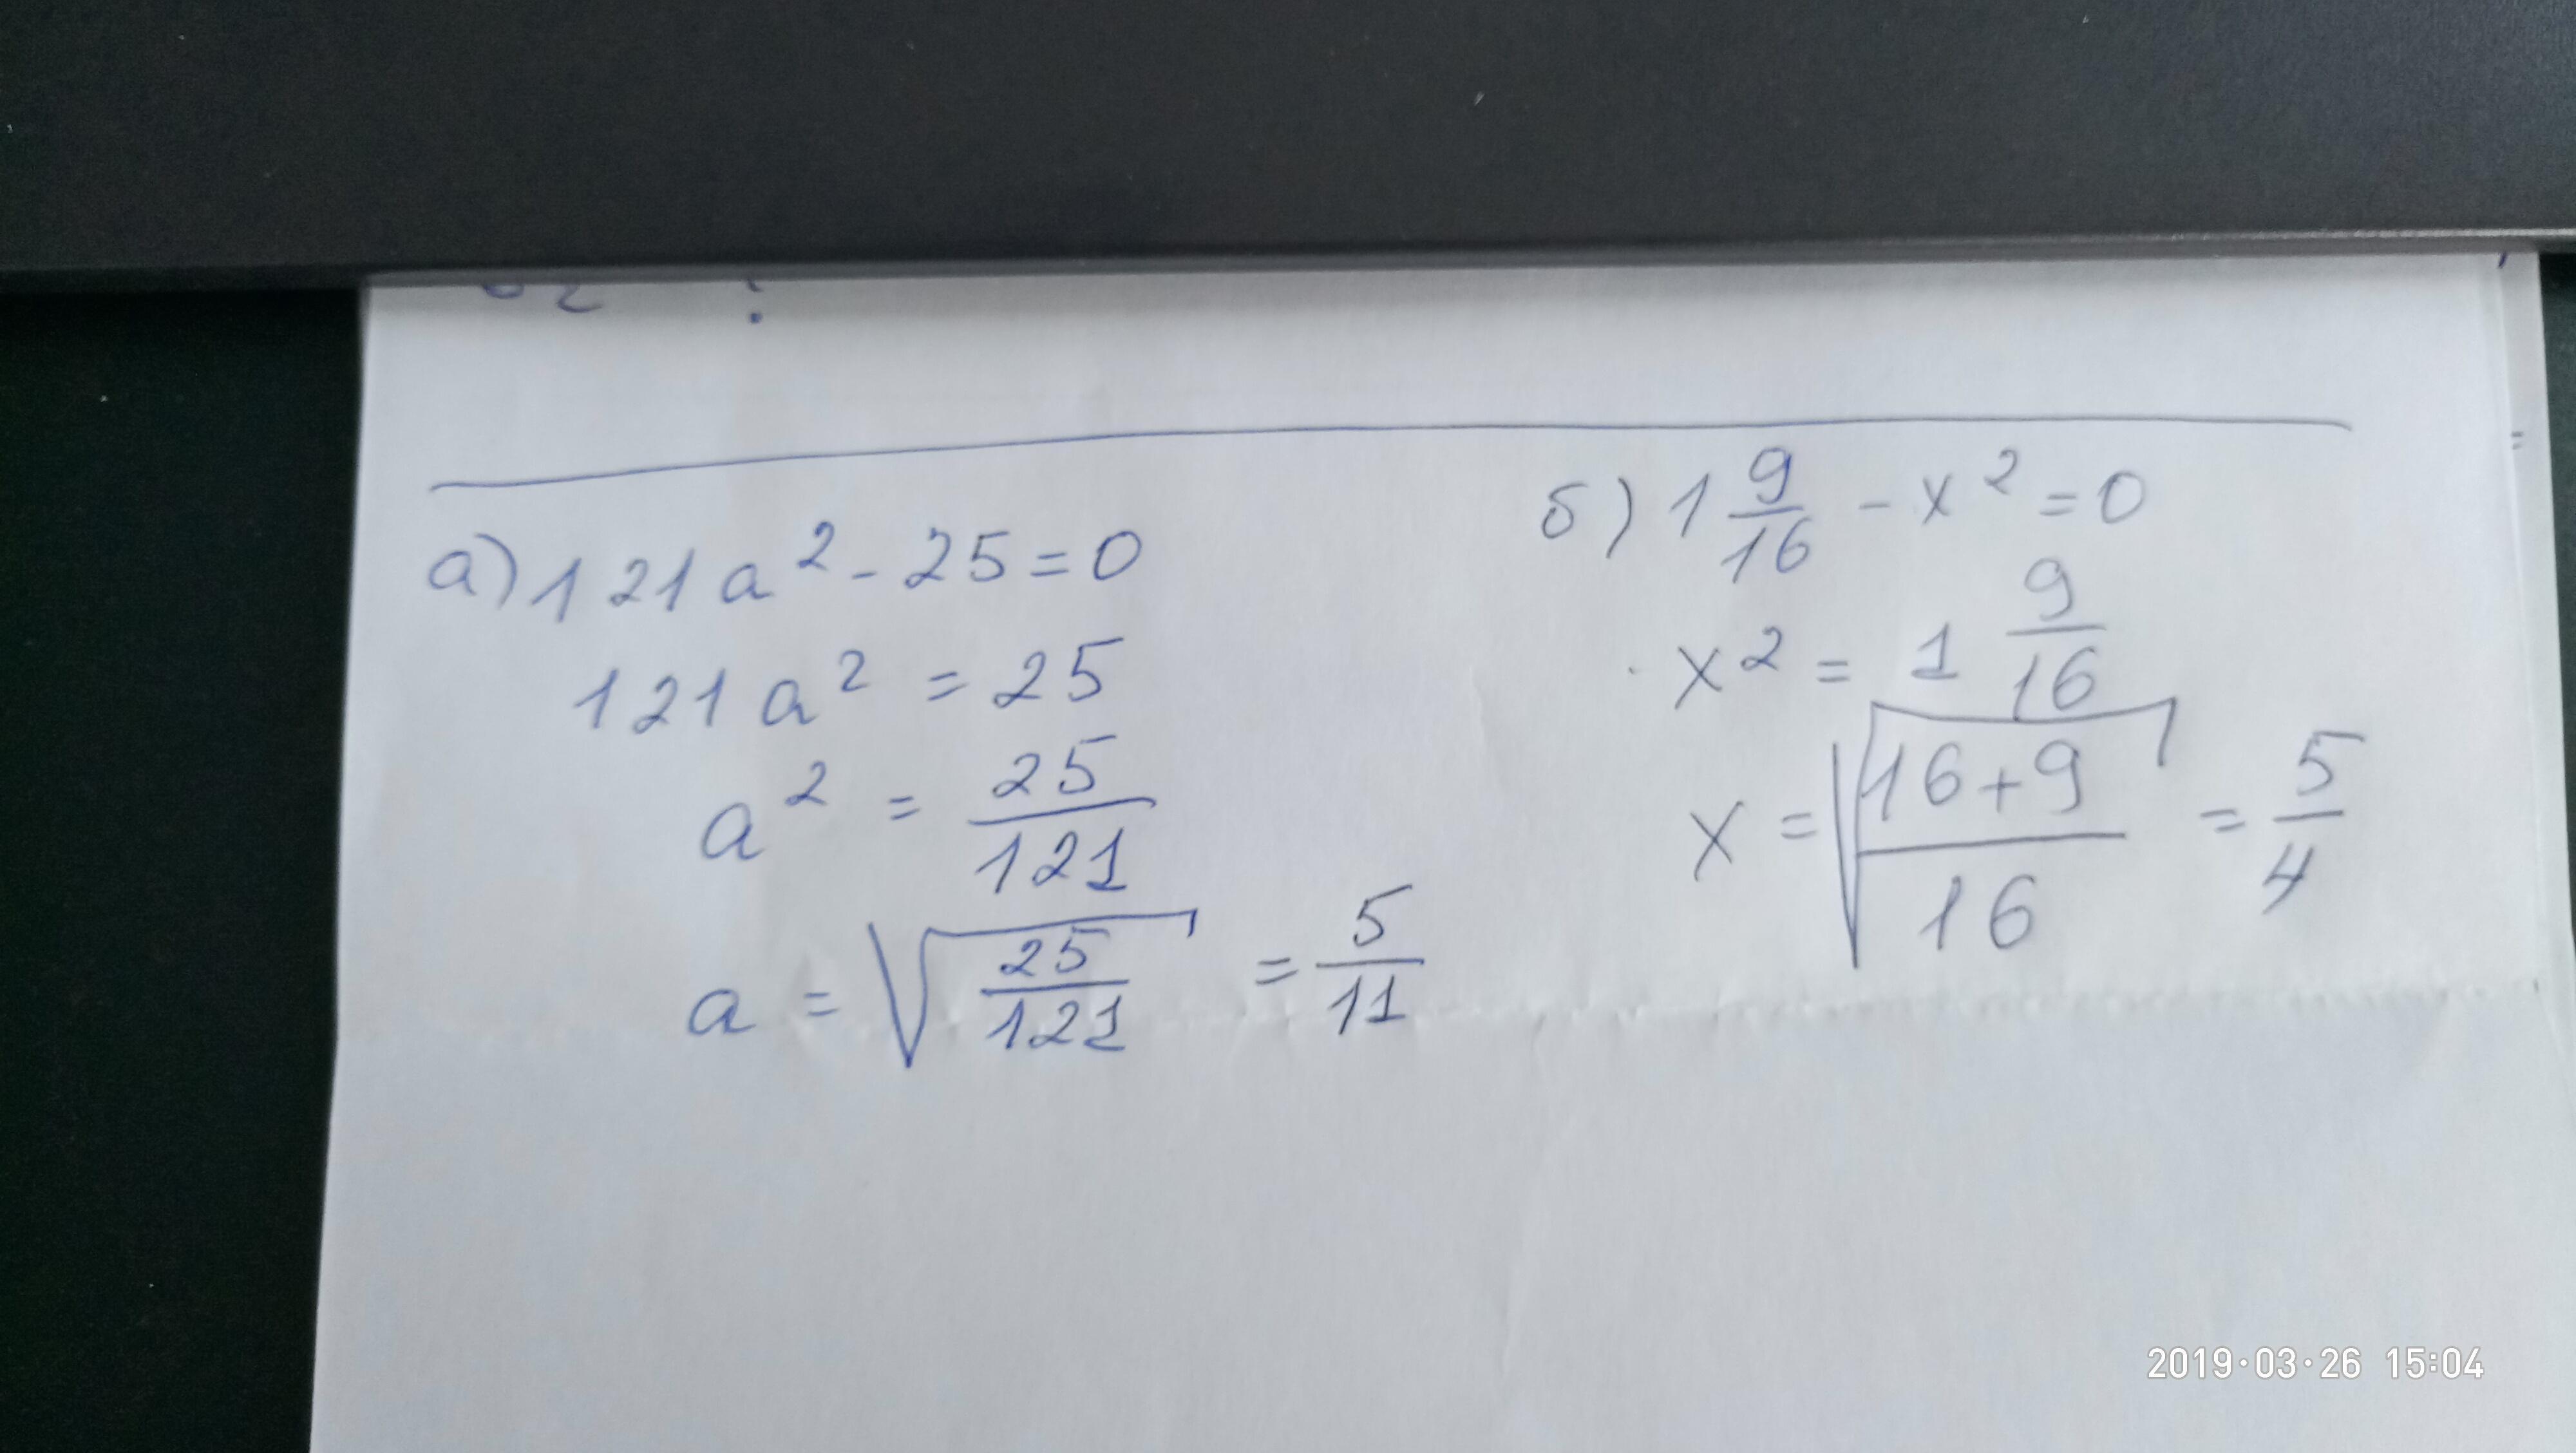 а) 121a² - 25 = 0
121a² = 25
a² = 25/121
a = √(25/121) = 5/11
б) 1 9/16 - x² = 0
x² = 1 9/16
x = √((16+9)/16) = 5/4
2019·03·26 15:04